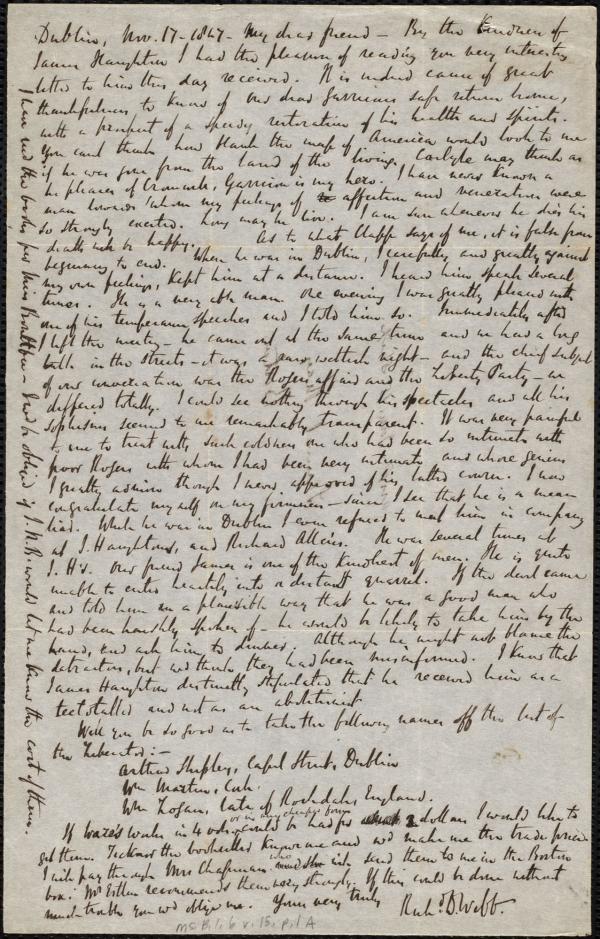 Dublin, Nov. 17 - 1847 - My dear friend - By the kindness of
James Haughton I had the pleasure of reading your very interesting
letter to him this day received. It is indeed cause of great
thankfulness to know of our dear Garrison's safe return home,
with a prospect of a speedy restoration of his health and spirits.
You can't think how blank the map of America would look to me
if he was gone from the land of the living. Carlyle may think as
he pleases of Cromwell, Garrison is my hero. I have never known a
man towards whom my feelings of affection and veneration were
so strongly excited. Long may he live. I am sure whenever he dies his
death will be happy. As to what Clapp says of me, it is false from
beginning to end. When he was in Dublin, I carefully, and greatly against
my own feelings, kept him at a distance. I heard him speak several
times. He is a very able man. One evening I was greatly pleased with
one of his temperance speeches and I told him so. Immediately after
I left the meeting - he came out at the same time and we had a long
talk in the streets - it was a raw, wettish night - and the chief subject
of our conversation was the Rogers affair and the Liberty Party - we
differed totally. I could see nothing through his spectacles and all his
sophisms seemed to me remarkably transparent. It was very painful
to me to treat with such coldness one who had been so intimate with
poor Rogers with whom I had been very intimate and whose genius
I greatly admire though I never approved of his latter course. I now
congratulate myself on my firmness - since I see that he is a mean
liar. While he was in Dublin I even refused to meet him in company
at J. Haughton's, and Richard Allen's. He was several times at
J. H's. Our friend James is one of the kindest of men. He is quite
unable to enter heartily into a distant quarrel. If the devil came
and told him in a plausible way that he was a good man who
had been harshly spoken of - he would be likely to take him by the
hand, and ask him to dinner. Although he might not blame the
detractors, but wd think they had been misinformed. I know that
James Haughton distinctly stipulated that he received him as a
teetotaller and not as an abolitionist.
Will you be so good as to take the following names off the list of
the Liberator: -
Arthur Shipley, Capel Street, Dublin
Wm Martin, Cork.
Wm Logan, late of Rochdale, England.
If Ware's works in 4 vols or in any cheaper form could be had for 2 dollars I would like to
get them. Ticknor the bookseller knows me and wd make me the trade price
I will pay through Mrs Chapman who will send them to me in the Boston
box. Mr Estlin recommends them very strongly. If this could be done without
much trouble you wd oblige me. Yours very truly
Richd. D. Webb.
I have recd the books per Miss - I wd be obliged if J. N. B. would let me know the cost of them.
Ms. B. 1. 6 v. 15, p. 1 A